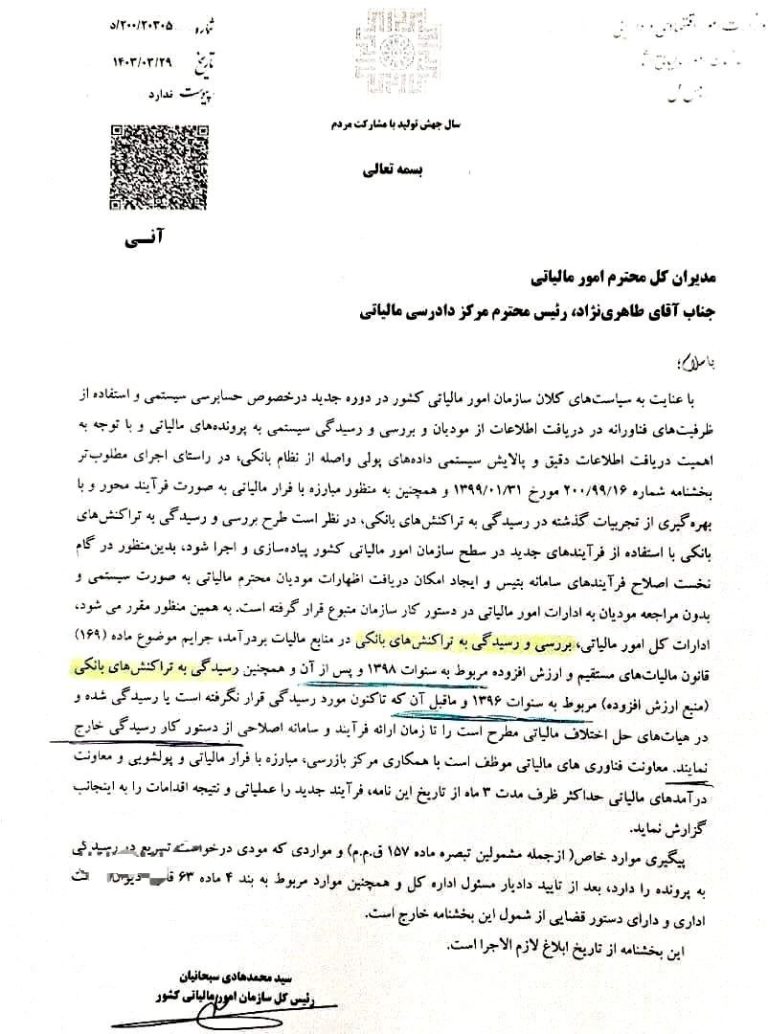 شماره ۲۰۰/۲۰۳۰۵/د
تاریخ ۱۴۰۳/۰۳/۲۹
پیوست ندارد
سال جهش تولید با مشارکت مردم
بسمه تعالی
آنــی
مدیران کل محترم امور مالیاتی
جناب آقای طاهری‌نژاد، رئیس محترم مرکز دادرسی مالیاتی
باسلام؛
با عنایت به سیاست‌های کلان سازمان امور مالیاتی کشور در دوره جدید درخصوص حسابرسی سیستمی و استفاده از
ظرفیت‌های فناورانه در دریافت اطلاعات از مودیان و بررسی و رسیدگی سیستمی به پرونده‌های مالیاتی و با توجه به
اهمیت دریافت اطلاعات دقیق و پالایش سیستمی داده‌های پولی واصله از نظام بانکی، در راستای اجرای مطلوب‌تر
بخشنامه شماره ۲۰۰/۹۹/۱۶ مورخ ۱۳۹۹/۰۱/۳۱ و همچنین به منظور مبارزه با فرار مالیاتی به صورت فرآیند محور و با
بهره‌گیری از تجربیات گذشته در رسیدگی به تراکنش‌های بانکی، در نظر است طرح بررسی و رسیدگی به تراکنش‌های
بانکی با استفاده از فرآیندهای جدید در سطح سازمان امور مالیاتی کشور پیاده‌سازی و اجرا شود، بدین‌منظور در گام
نخست اصلاح فرآیندهای سامانه بتیس و ایجاد امکان دریافت اظهارات مودیان محترم مالیاتی به صورت سیستمی و
بدون مراجعه مودیان به ادارات امور مالیاتی در دستور کار سازمان متبوع قرار گرفته است. به همین منظور مقرر می شود،
ادارات کل امور مالیاتی، بررسی و رسیدگی به تراکنش‌های بانکی در منابع مالیات بردرآمد، جرایم موضوع ماده (۱۶۹)
قانون مالیات‌های مستقیم و ارزش افزوده مربوط به سنوات ۱۳۹۸ و پس از آن و همچنین رسیدگی به تراکنش‌های بانکی
(منبع ارزش افزوده) مربوط به سنوات ۱۳۹۶ و ماقبل آن که تاکنون مورد رسیدگی قرار نگرفته است یا رسیدگی شده و
در هیات‌های حل اختلاف مالیاتی مطرح است را تا زمان ارائه فرآیند و سامانه اصلاحی از دستور کار رسیدگی خارج
نمایند. معاونت فناوری های مالیاتی موظف است با همکاری مرکز بازرسی، مبارزه با فرار مالیاتی و پولشویی و معاونت
درآمدهای مالیاتی حداکثر ظرف مدت ۳ ماه از تاریخ این نامه، فرآیند جدید را عملیاتی و نتیجه اقدامات را به اینجانب
گزارش نماید.
پیگیری موارد خاص( ازجمله مشمولین تبصره ماده ۱۵۷ ق.م.م) و مواردی که مودی درخواست تسریع در رسیدگی
به پرونده را دارد، بعد از تایید دادیار مسئول اداره کل و همچنین موارد مربوط به بند ۴ ماده ۶۳
اداری و دارای دستور قضایی از شمول این بخشنامه خارج است.
این بخشنامه از تاریخ ابلاغ لازم الاجرا است.
سید محمدهادی سبحانیان
رئیس کل سازمان امور مالیاتی کشور